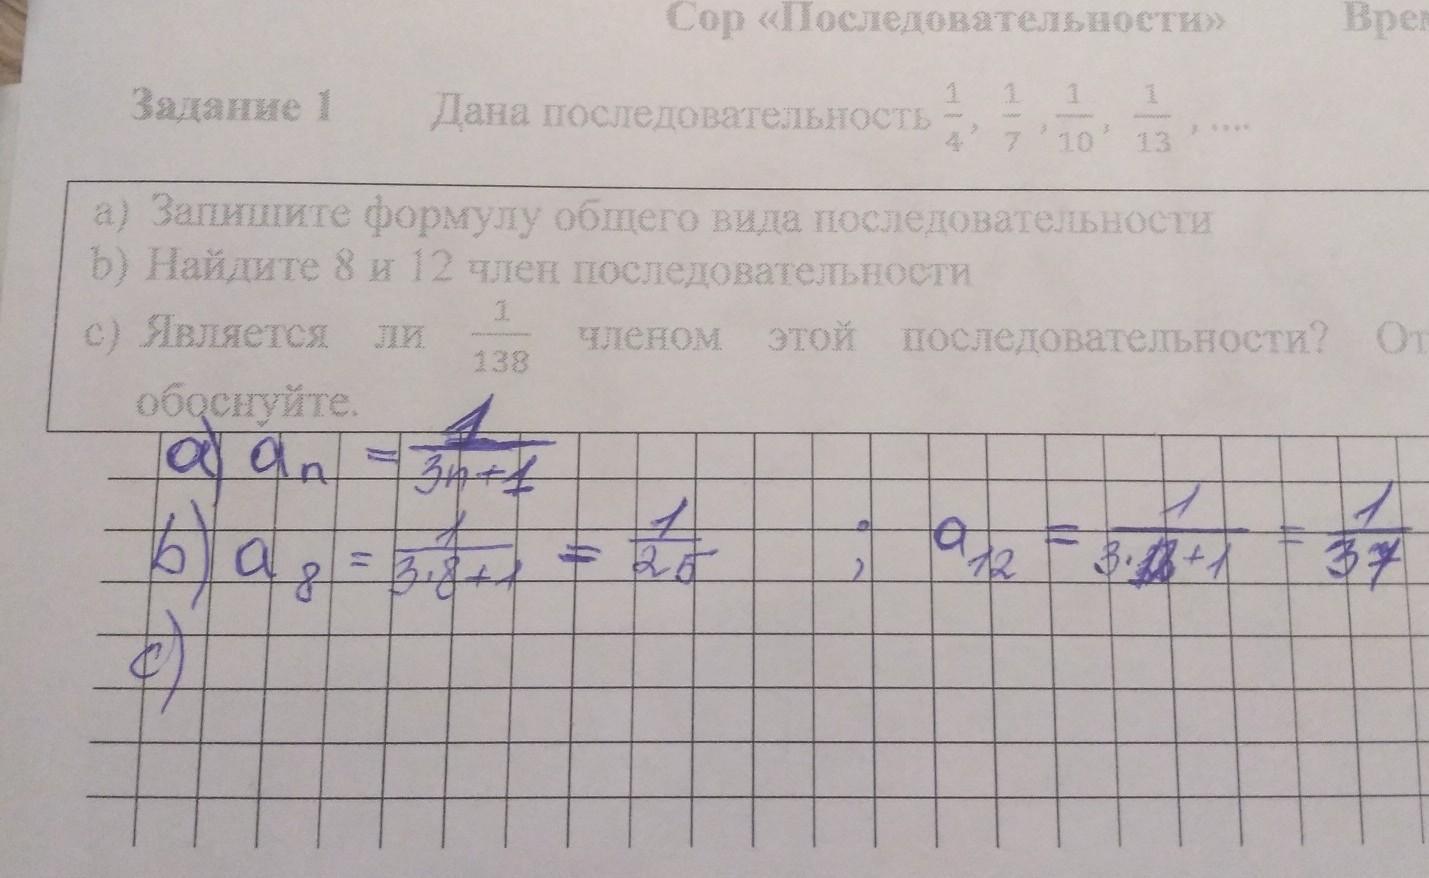 Сор «Последовательности» Врем
Задание 1 Дана последовательность 1/4, 1/7, 1/10, 1/13, ....
a) Запишите формулу общего вида последовательности
b) Найдите 8 и 12 член последовательности
c) Является ли 1/138 членом этой последовательности? От
обоснуйте.
a) a_n = 1/(3n+1)
b) a_8 = 1/(3·8+1) = 1/25 ; a_12 = 1/(3·12+1) = 1/37
c)